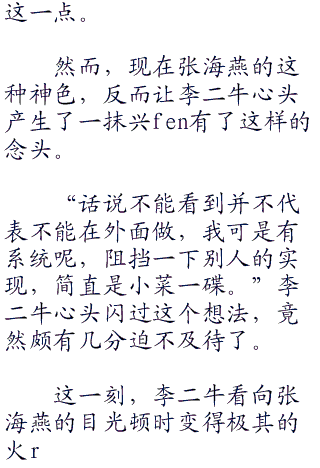 这一点。
然而，现在张海燕的这
种神色，反而让李二牛心头
产生了一抹兴fen有了这样的
念头。
“话说不能看到并不代
表不能在外面做，我可是有
系统呢，阻挡一下别人的实
现，简直是小菜一碟。”李
二牛心头闪过这个想法，竟
然颇有几分迫不及待了。
这一刻，李二牛看向张
海燕的目光顿时变得极其的
火r